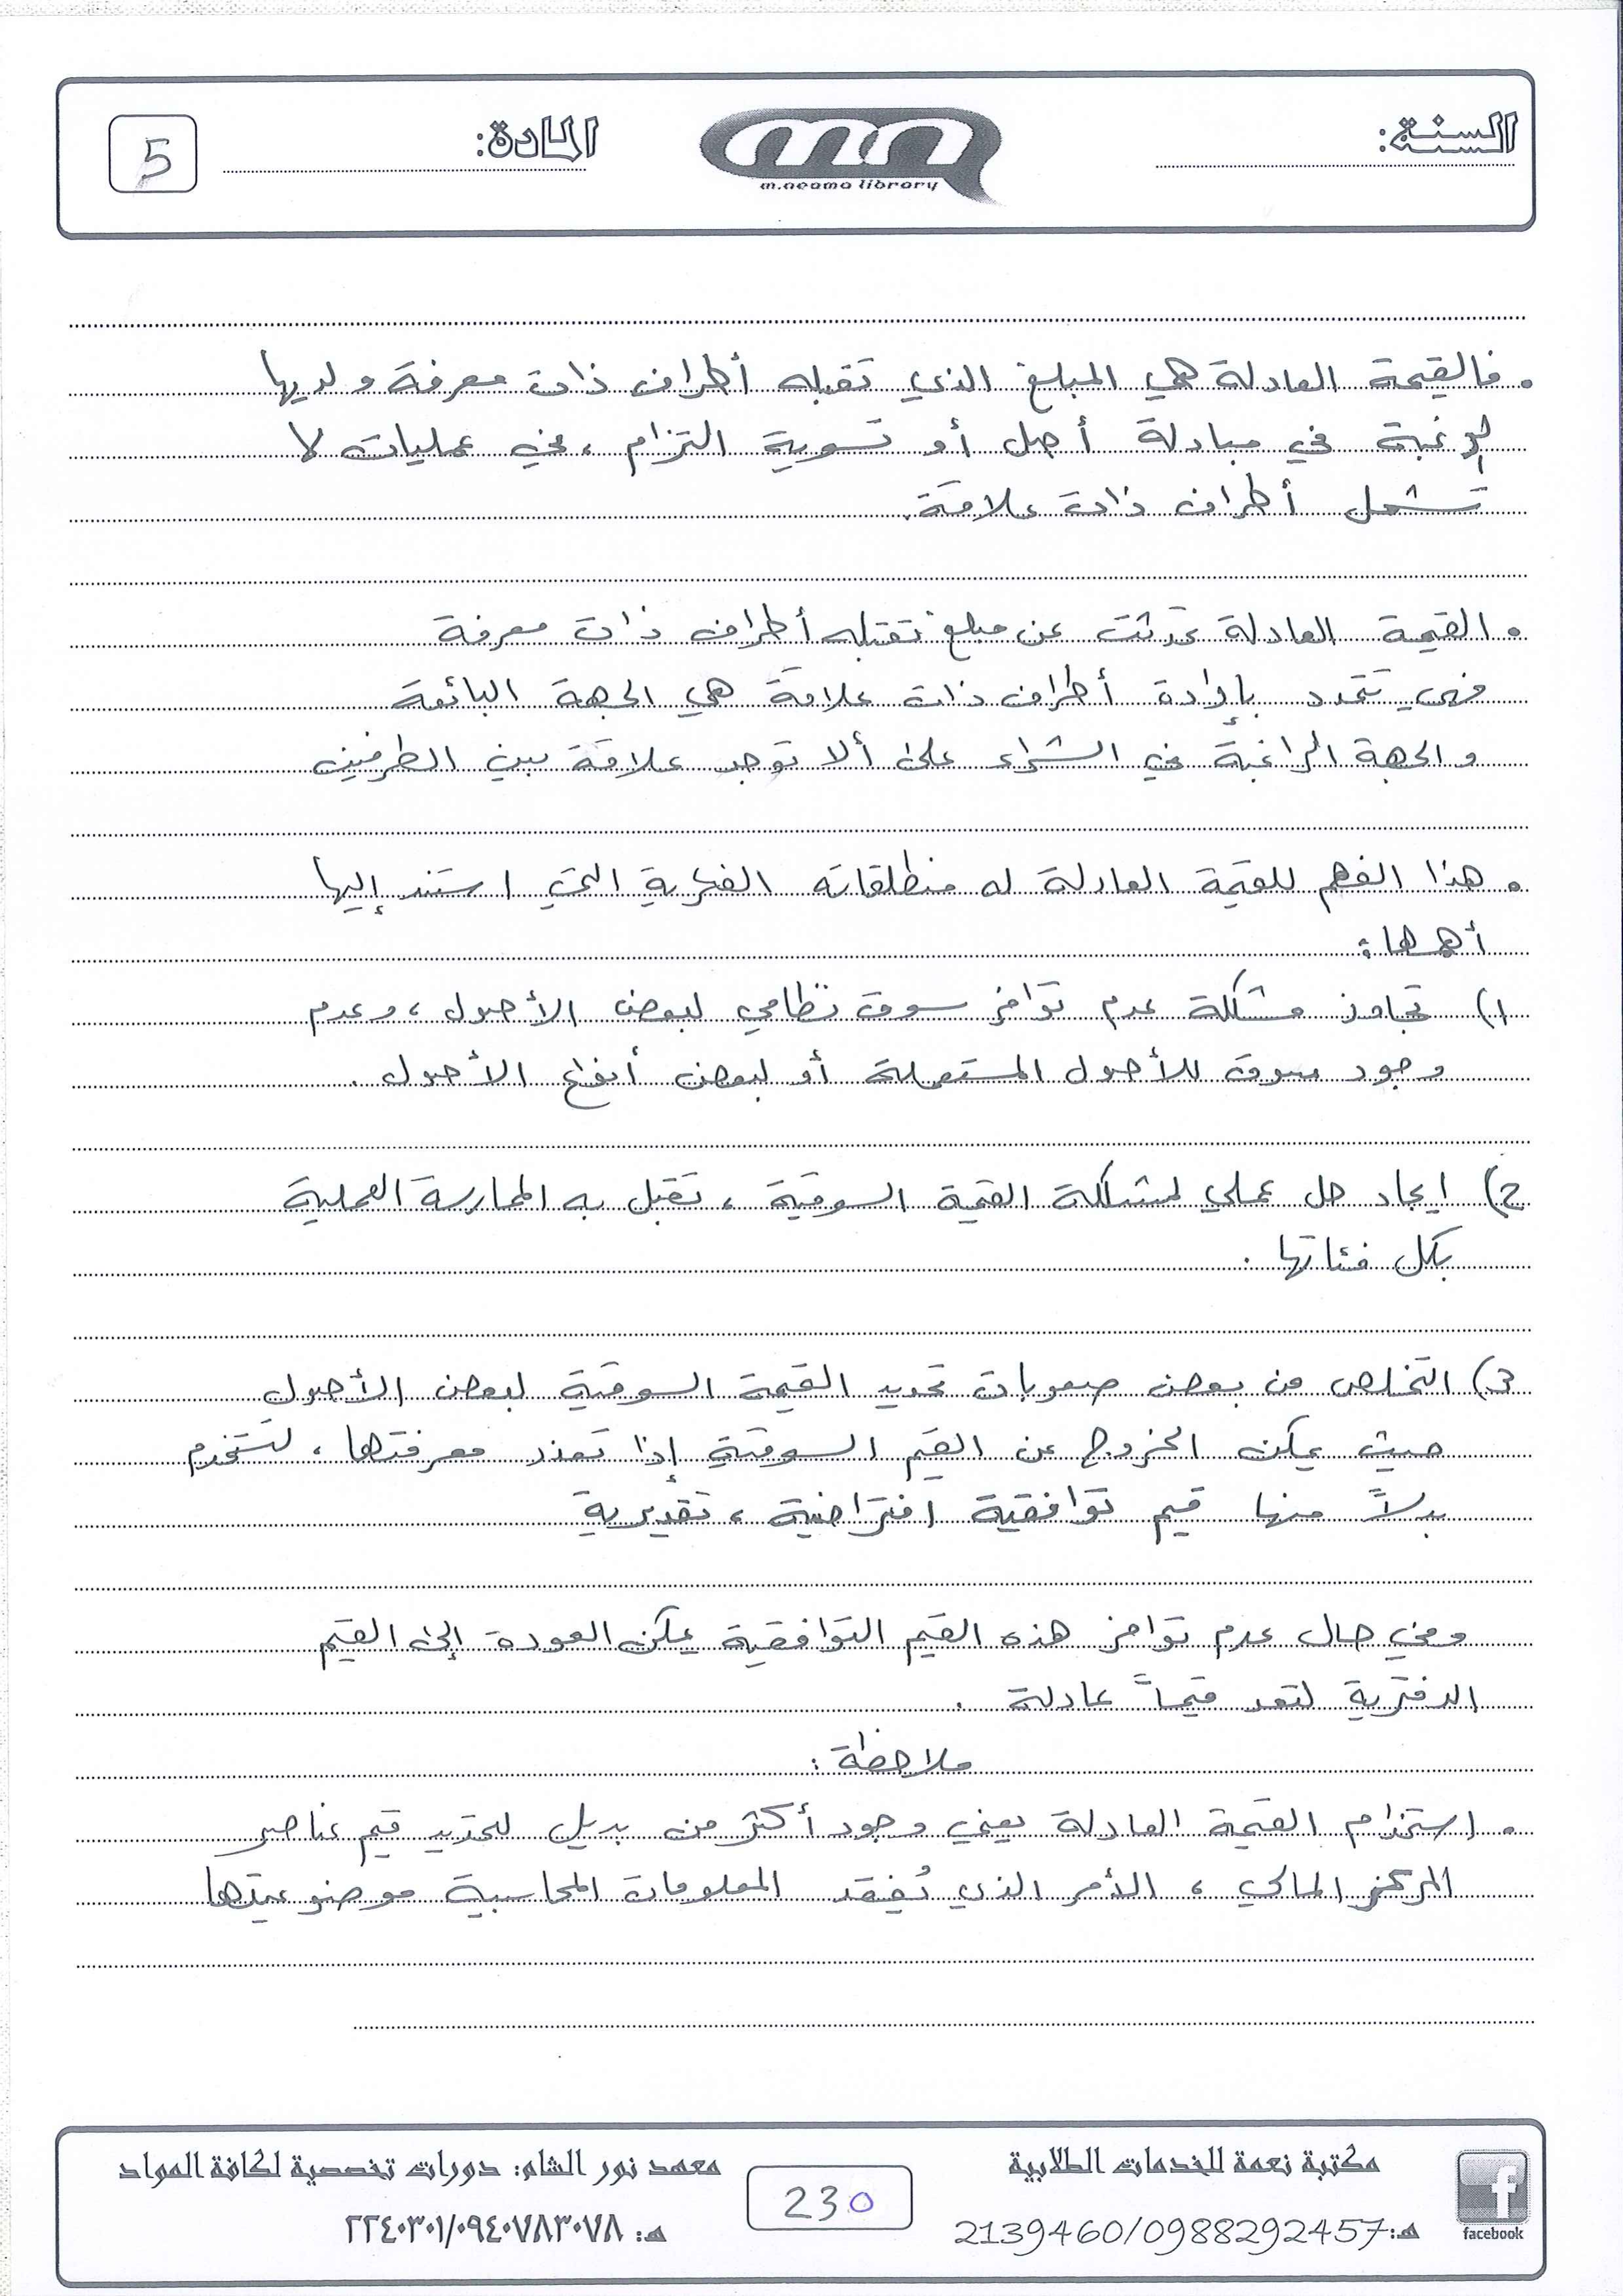 السنة:
m.neama library
المادة:
5
• فالقيمة العادلة هي المبلغ الذي تقبله أطراف ذات معرفة ولديها
الرغبة في مبادلة أصل أو تسوية التزام، في عمليات لا
تشمل أطراف ذات علاقة.
• القيمة العادلة تحدثت عن مبلغ تقبله أطراف ذات معرفة
فهي تتحدد بإرادة أطراف ذات علاقة هي الجهة البائعة
والجهة الراغبة في الشراء على ألا توجد علاقة بين الطرفين
• هذا الفهم للقيمة العادلة له منطلقاته الفكرية التي استند إليها
أهمها:
1) تجاوز مشكلة عدم توافر سوق نظامي لبعض الأصول، وعدم
وجود سوق للأصول المستعملة أو لبعض أنواع الأصول.
2) ايجاد حل عملي لمشكلة القيمة السوقية، تقبل به الممارسة العملية
بكل فئاتها.
3) التخلص من بعض صعوبات تحديد القيمة السوقية لبعض الأصول
حيث يمكن الخروج عن القيم السوقية إذا تعذر معرفتها، لتستخدم
بدلاً منها قيم توافقية افتراضية، تقديرية
وفي حال عدم توافر هذه القيم التوافقية يمكن العودة إلى القيم
الدفترية لتعد قيماً عادلة.
ملاحظة:
• استخدام القيمة العادلة يعني وجود أكثر من بديل لتحديد قيم عناصر
المركز المالي، الأمر الذي يُفقد المعلومات المحاسبية موضوعيتها
مكتبة نعمة للخدمات الطلابية
هـ:2139460/0988292457
facebook
230
معهد نور الشام: دورات تخصصية لكافة المواد
هـ: ٢٢٤٠٣٠١/٠٩٤٠٧٨٣٠٧٨